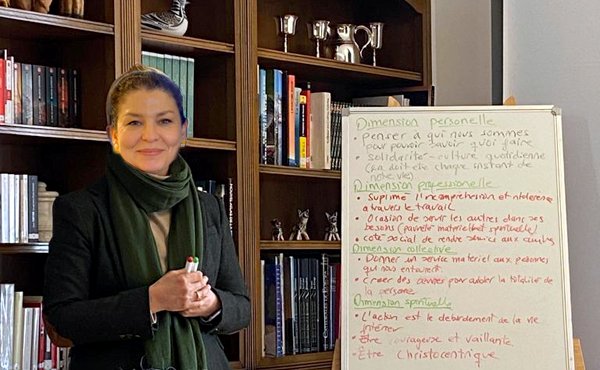 Dimension personelle
• penser à qui nous sommes
pour pouvoir savoir quoi faire
• solidarité - culture quotidienne
(on doit être chaque instant de
notre vie)
Dimension professionelle
• Suprime l'incomprehension et intolerence
a travers le travail
• Ocasion de servir les autres dans ses
besoins (pauvreté materiel et spirituelle)
• coté social de rendre service aux autres
Dimension collective
• Donner un service materiel aux personnes
qui nous entourent
• creer des centres pour aborder la totalité de
la personne
Dimension spirituelle
• L'action est le debordement de la vie
interior
• Être courageuse et vaillante
• Être Christocentrique